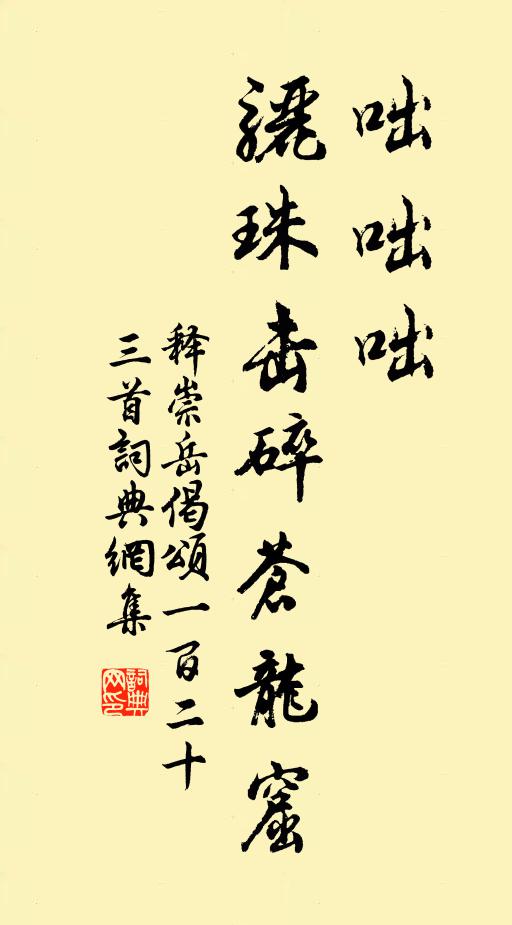 咄咄咄
驪珠击碎蒼龍窟
释崇岳偈頌一百二十
三首詞典網集
詞典網印